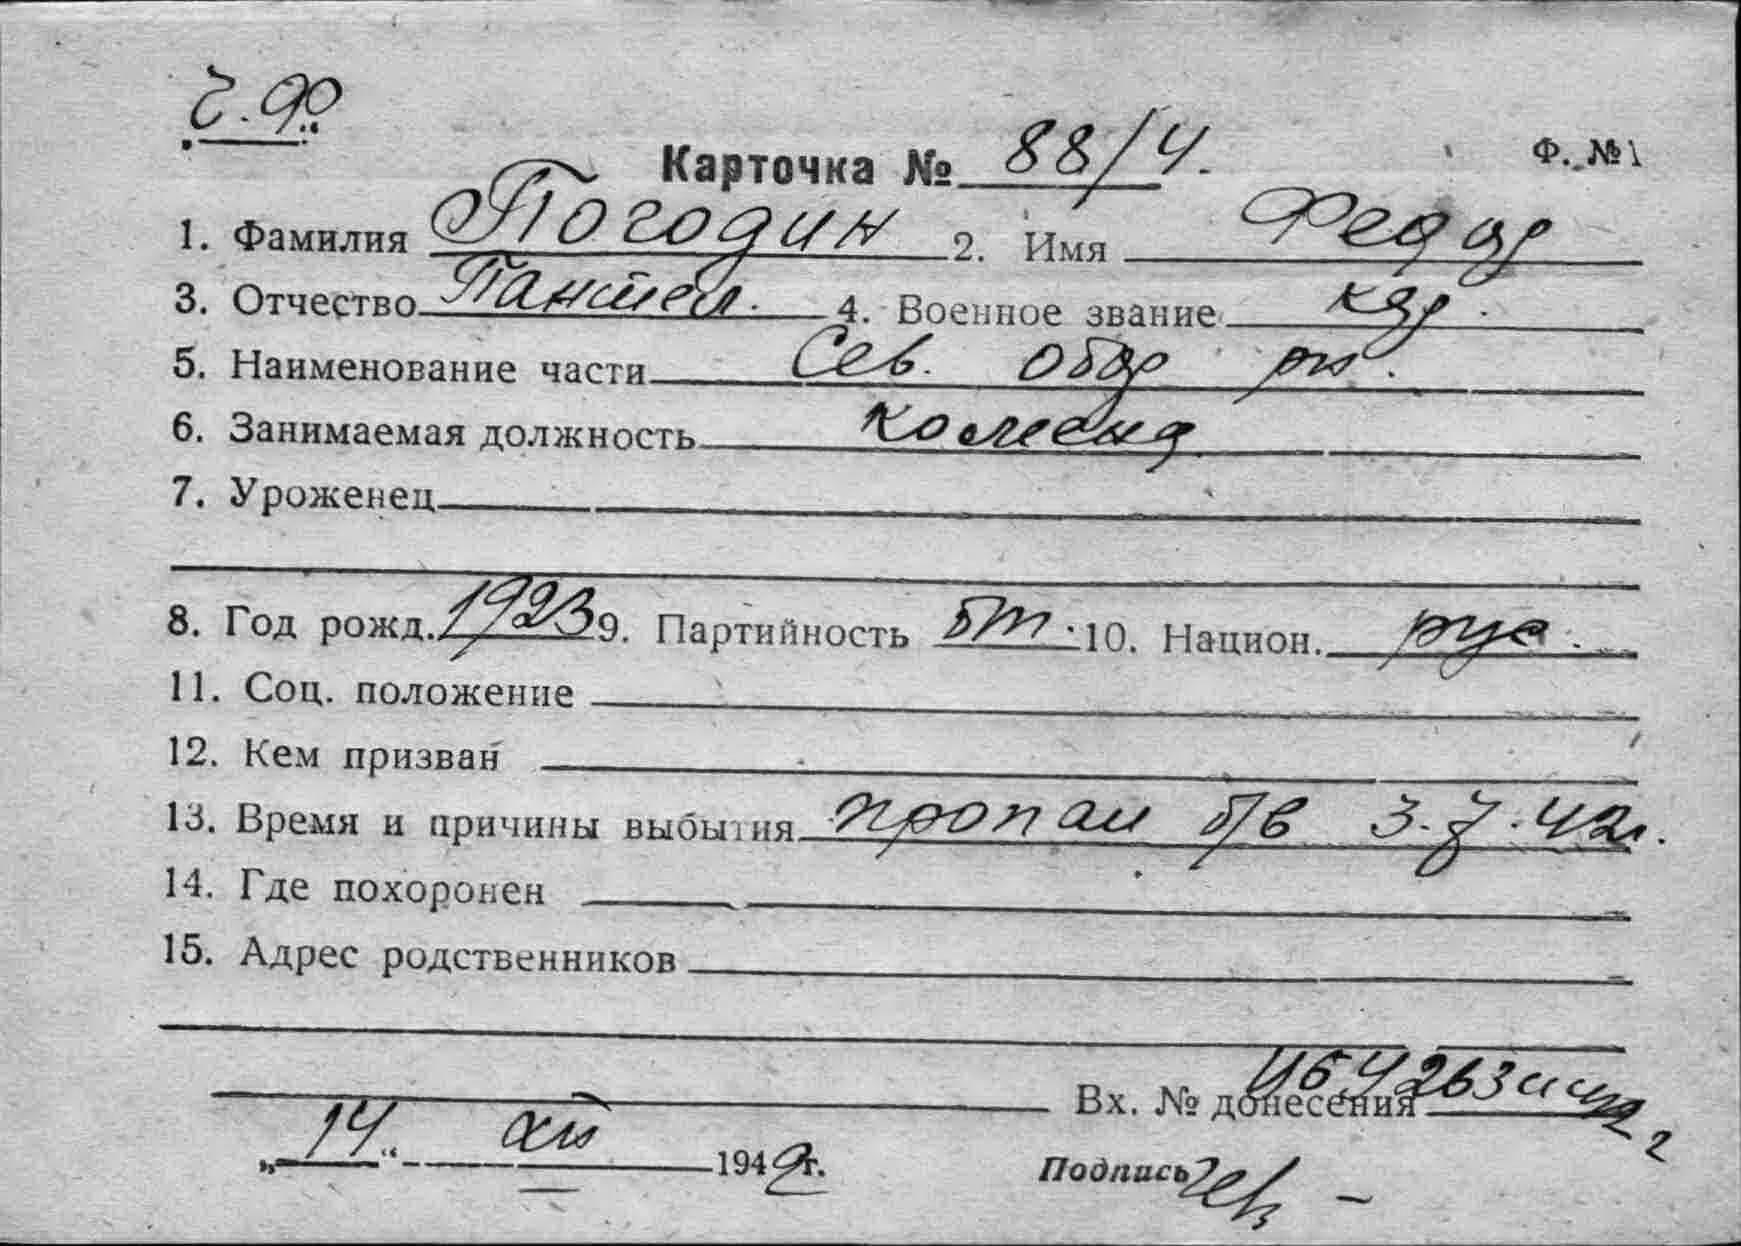 Ч.Ф
Карточка № 88/4. Ф. №1
1. Фамилия Погодин 2. Имя Федор
3. Отчество Пантел. 4. Военное звание кр.
5. Наименование части Сев. обор рн.
6. Занимаемая должность Коменд.
7. Уроженец
8. Год рожд. 1923 9. Партийность б/п. 10. Национ. рус.
11. Соц. положение
12. Кем призван
13. Время и причины выбытия пропал б/в 3.7.42г.
14. Где похоронен
15. Адрес родственников
Вх. № донесения
„14“ XII 1942г. Подпись